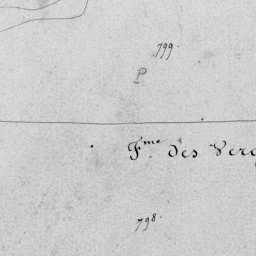 799.
P
Fme des Verg
798.